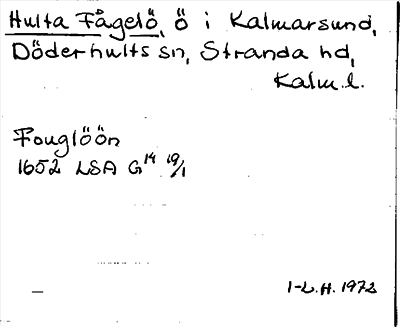 Hulta Fågelö, ö i Kalmarsund,
Döderhults sn, Stranda hd,
Kalm.l.
Fouglöön
1652 LSA G14 19/1
I-L.H. 1972